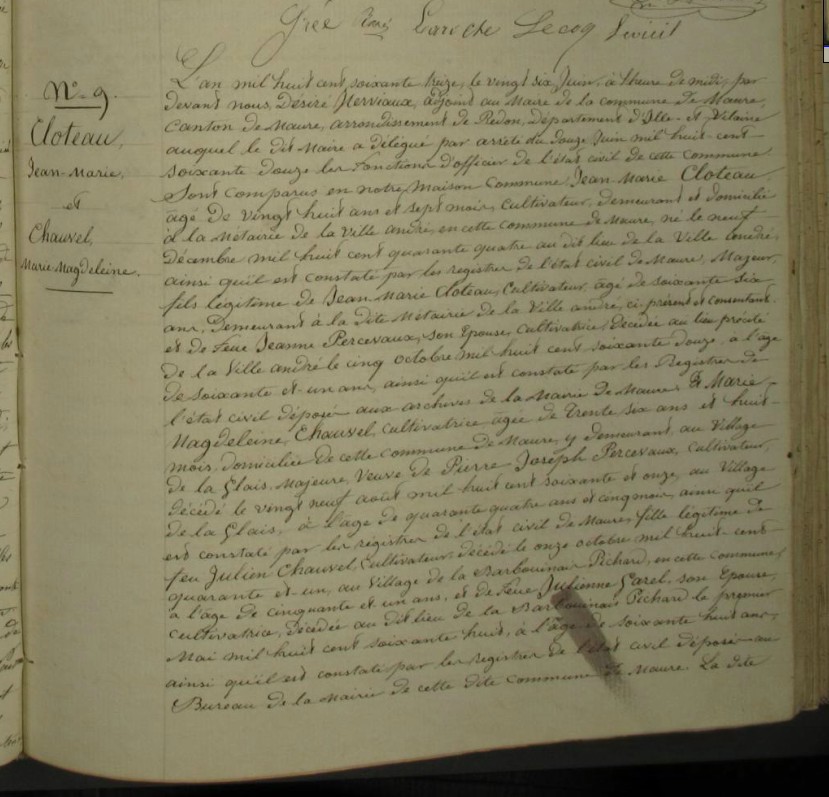 Grée Laroche Lecoq
N° 9.
Cloteau,
Jean-Marie,
et
Chauvel,
Marie Magdeleine.
L'an mil huit cent soixante treize, le vingt six Juin, à l'heure de midi, par
devant nous, Désiré Herviaux, adjoint au Maire de la commune de Maure,
Canton de Maure, arrondissement de Redon, Département d'Ille-et-Vilaine
auquel le dit Maire a délégué par arrêté du douze Juin mil huit-cent-
soixante douze les fonctions d'officier de l'état civil de cette commune
Sont comparus en notre Maison Commune, Jean Marie Cloteau,
âgé de vingt huit ans et sept mois, Cultivateur, demeurant et domicilié
à la Métairie de la Ville andré, en cette commune de Maure, né le neuf
Décembre mil huit cent quarante quatre au dit lieu de la Ville andré,
ainsi qu'il est constaté par les registres de l'état civil de Maure, Majeur,
fils légitime de Jean Marie Cloteau, Cultivateur, âgé de soixante six
ans, Demeurant à la dite Métairie de la Ville andré, ci-présent et consentant.
et de Feue Jeanne Percevaux, son Epouse, Cultivatrice, Décédée au lieu précité
de la Ville andré le cinq octobre mil huit cent soixante douze, à l'âge
de soixante et un ans, ainsi qu'il est constaté par les Registres de
l'état civil déposés aux archives de la Mairie de Maure & Marie
Magdeleine Chauvel, Cultivatrice, âgée de Trente six ans et huit-
mois, domiciliée de cette commune de Maure, y demeurant, au Village
de la Glais, Majeure, Veuve de Pierre-Joseph Percevaux, Cultivateur,
décédé le vingt neuf août mil huit cent soixante et onze, au Village
de la Glais, à l'âge de quarante quatre ans et cinq mois, ainsi qu'il
est constaté par les registres de l'état civil de Maure, fille légitime de
feu Julien Chauvel, Cultivateur, décédé le onze octobre mil huit-cent-
quarante et un, au Village de la Barbouinais Pichard, en cette commune,
à l'âge de cinquante et un ans, et de Feue Julienne Garel, son Epouse,
cultivatrice, décédée au dit lieu de la Barbouinais Pichard le premier
Mai mil huit cent soixante huit, à l'âge de soixante huit ans,
ainsi qu'il est constaté par les registres de l'état civil déposés au
Bureau de la Mairie de cette dite commune de Maure. La dite